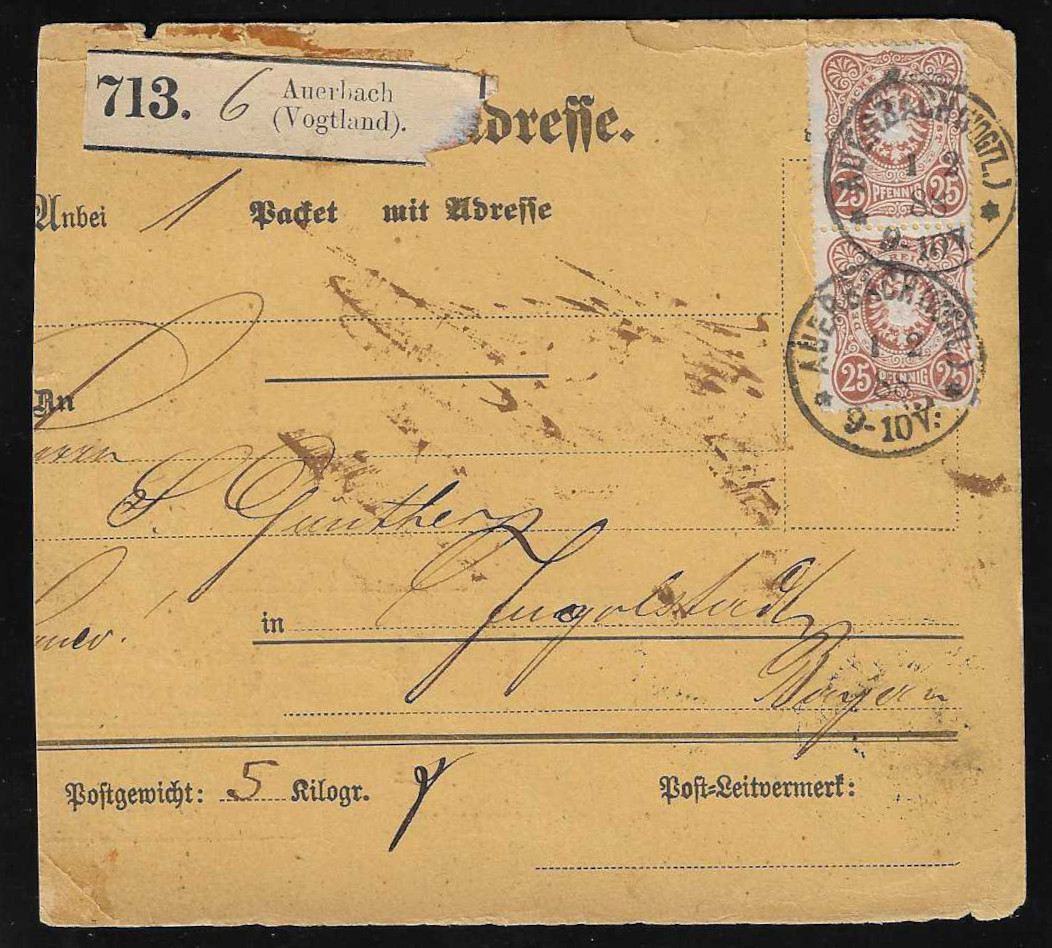 713. 6 Auerbach
(Vogtland).
Adresse.
AUERBACH (VOGTL.)
1 2
88
9-10V.
25 PFENNIG 25
Anbei 1 Packet mit Adresse
REICH
AUERBACH (VOGTL.)
1 2
88
9-10V.
25 PFENNIG 25
An
S. Günther
in Ingolstadt
Bayern
Postgewicht: 5 Kilogr.
Post-Leitvermerk: